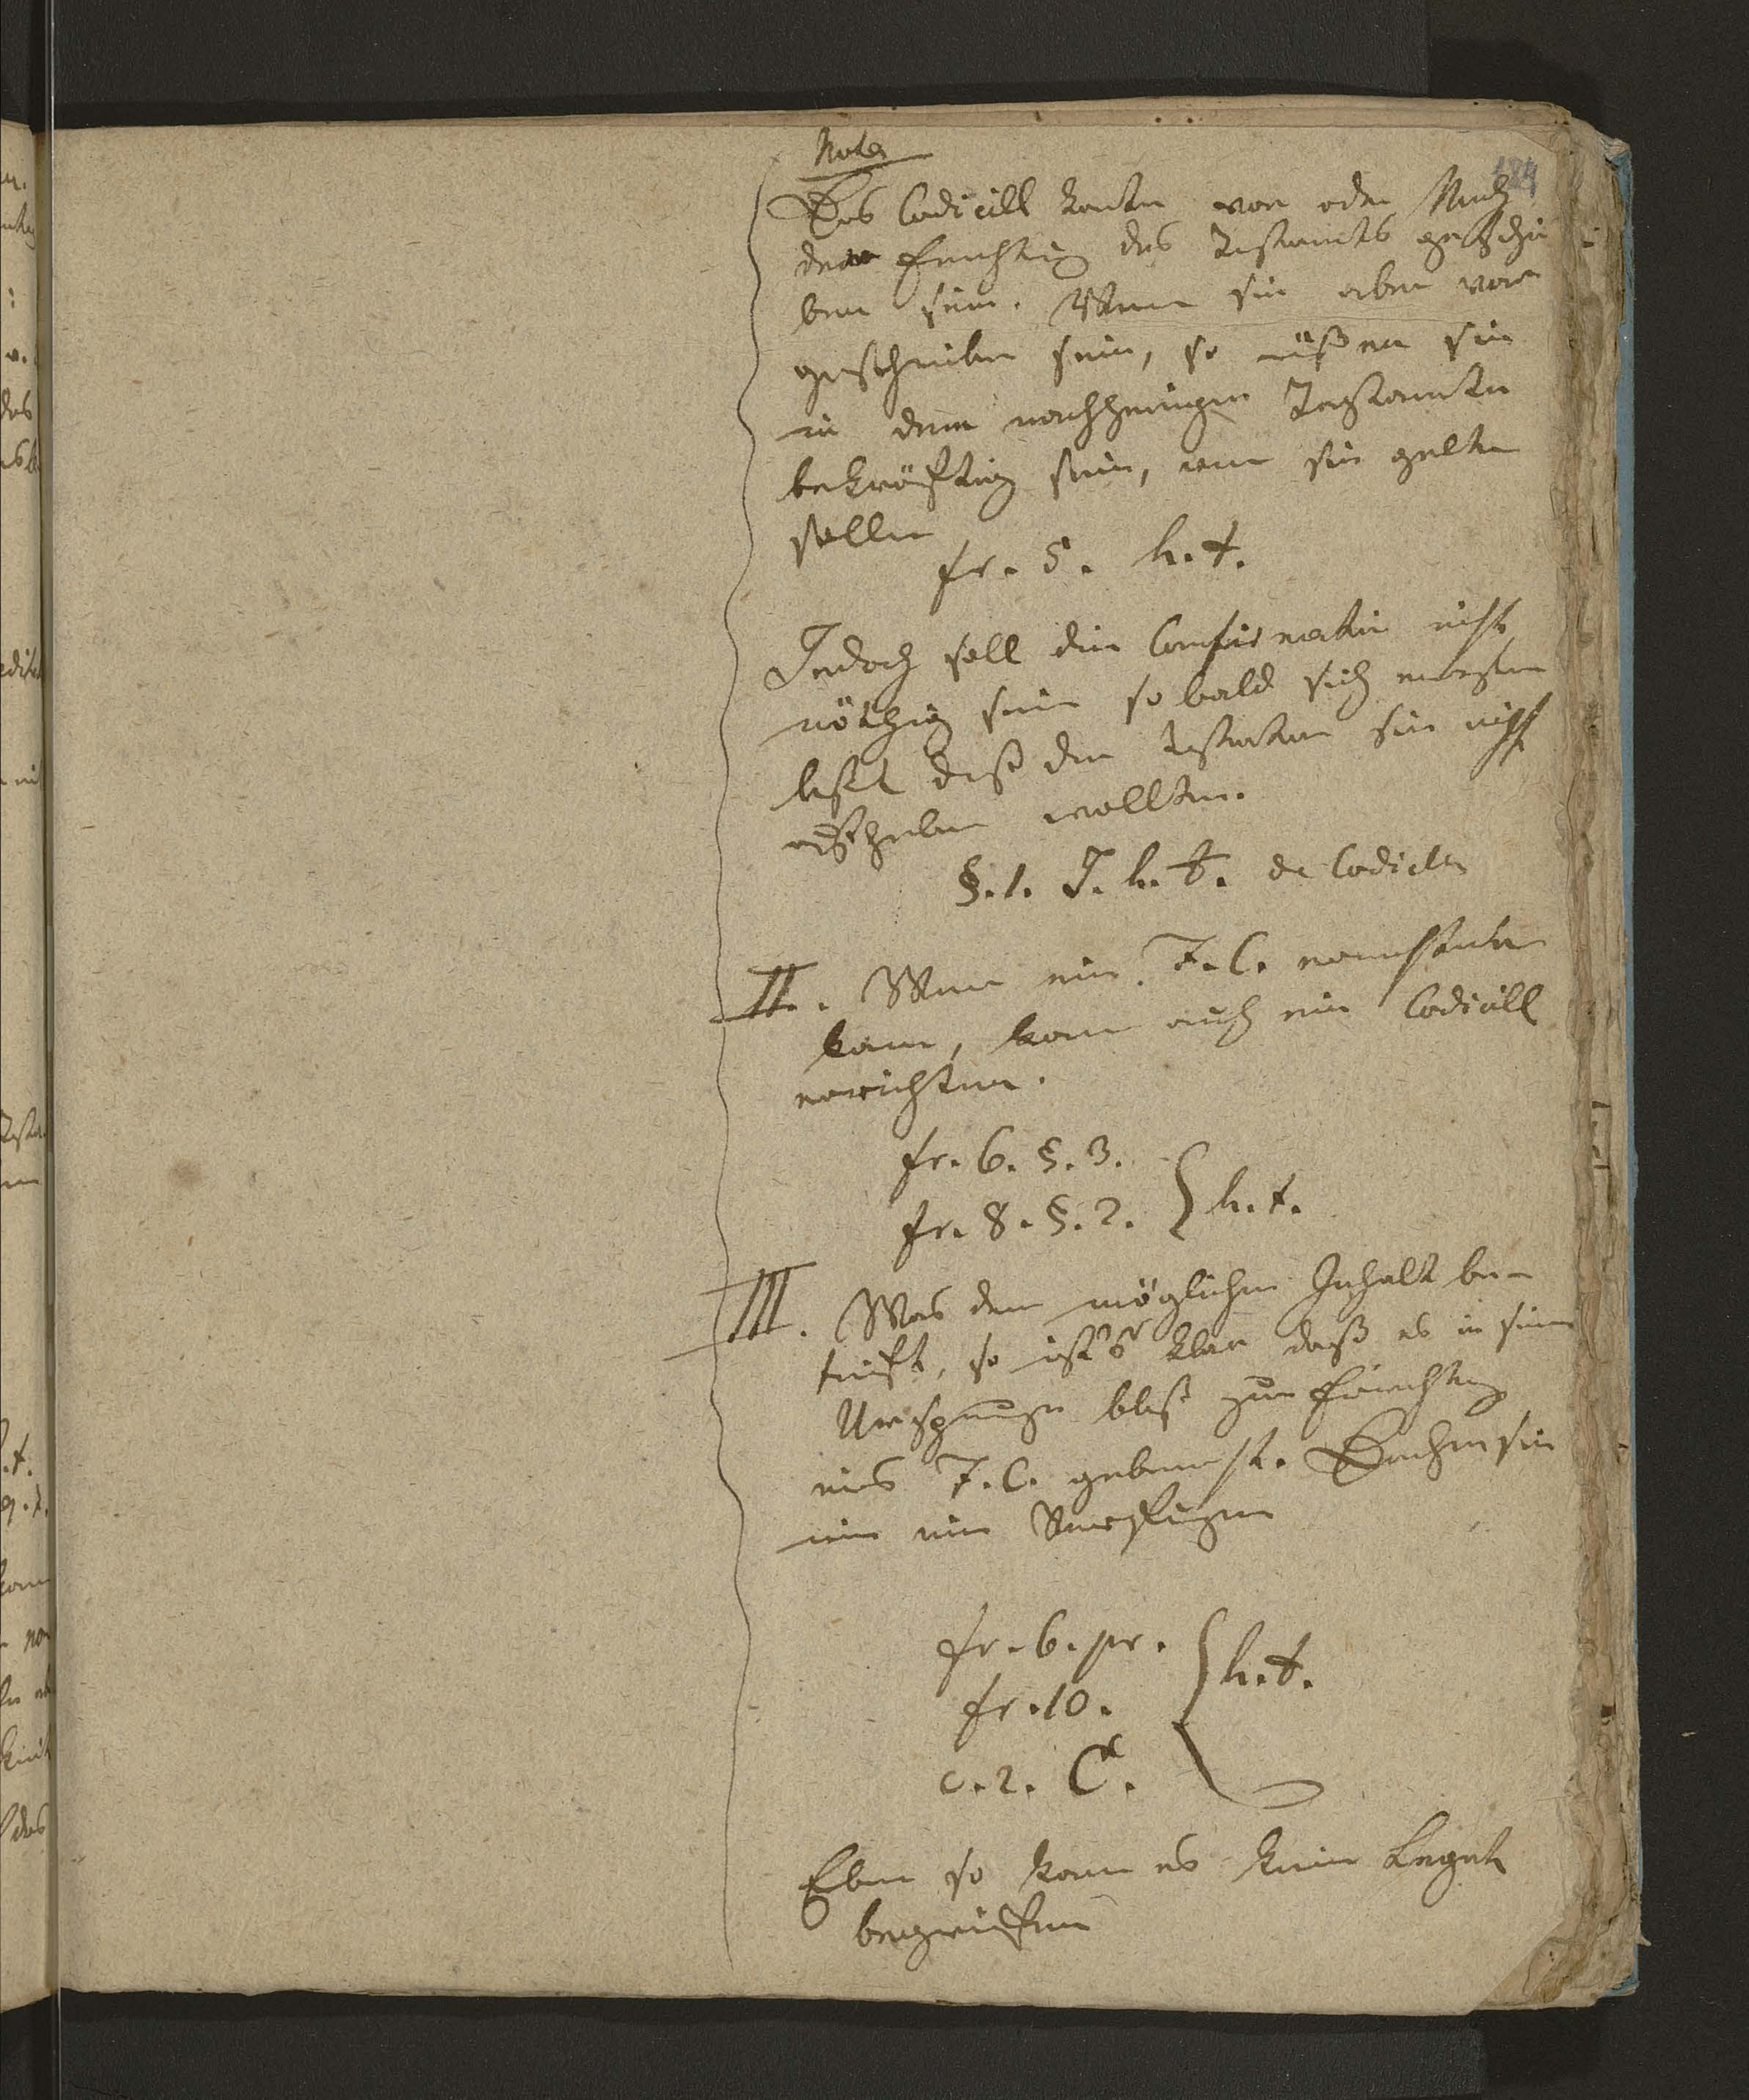 Nota
184
Das Codicill konte vor oder Nach
der Errichtung des Testaments geschrie
ben sein. Wenn sie aber vor
geschrieben sein, so müßen sie
in dem nachherigen Testamente
bekräftig sein, wenn sie gelten
sollen
fr. 5. h. t.
Jedoch soll die Confirmation nicht
nöthig sein so bald sich
läßt daß der Testator sie nicht
aufheben wollten.
§. 1. J. h. t. de Codicill
II. Wenn ein F. C.
kann, kann auch ein Codicill
errichten.
fr. 6. §. 3.
fr. 8. §. 2. } h. t.
III. Was den möglichen Inhalt be-
trift, so ist's klar daß es in seinem
Ursprunge bloß zur Errichtung
eines F. C. gebraucht.
ein
fr. 6. pr.
fr. 10. } h. t.
c. 2. C.
Eben so kann es kein Legat
begreiffen